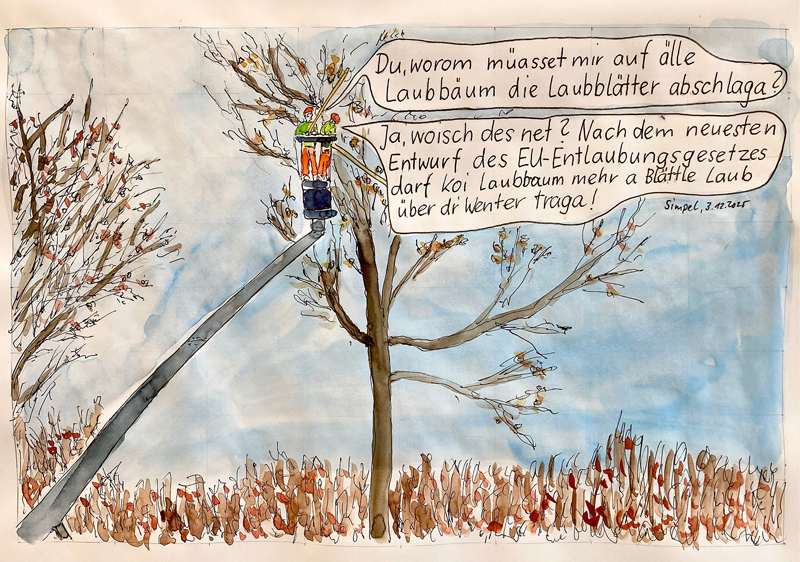 Du, worom müasset mir auf älle
Laubbäum die Laubblätter abschlaga?
Ja, woisch des net? Nach dem neuesten
Entwurf des EU-Entlaubungsgesetzes
darf koi Laubbaum mehr a Blättle Laub
über dr Wenter traga!
Simpel, 3.12.2025